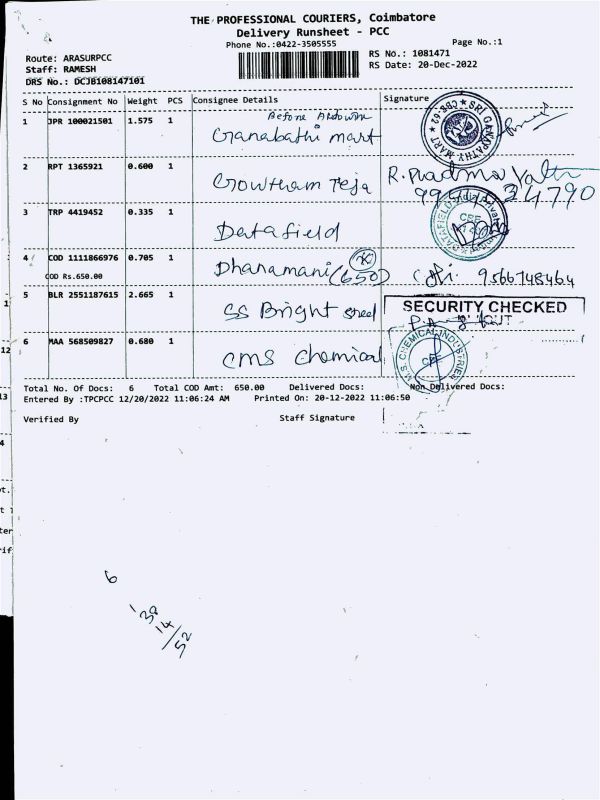 THE PROFESSIONAL COURIERS, Coimbatore
Delivery Runsheet - PCC
Phone No.:0422-3505555
Page No.:1
Route: ARASURPCC
Staff: RAMESH
DRS No.: DCJB108147101
RS No.: 1081471
RS Date: 20-Dec-2022
S No Consignment No Weight PCS Consignee Details Signature
1 JPR 100021501 1.575 1 Ganabathi mart
SRI GANAPATHY MART ★ CBE-62 ★
2 RPT 1365921 0.600 1 Gowtham Teja R. Padma
34790
3 TRP 4419452 0.335 1 Datafield
DATAFIELD
4 COD 1111866976 0.705 1 Dhanamani (650) 9566748464
COD Rs.650.00
5 BLR 2551187615 2.665 1 SS Bright steel SECURITY CHECKED
OUT
6 MAA 568509827 0.680 1 cms chemical
CHEMICAL INDUSTRIES
Total No. Of Docs: 6 Total COD Amt: 650.00 Delivered Docs: Non Delivered Docs:
Entered By :TPCPCC 12/20/2022 11:06:24 AM Printed On: 20-12-2022 11:06:50
Verified By Staff Signature
6
14/52